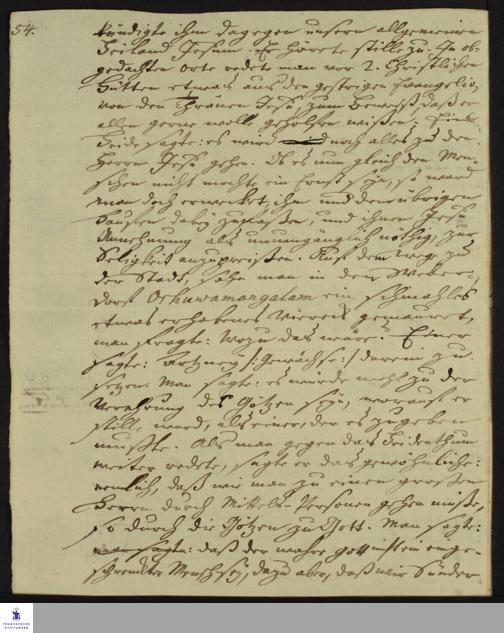 54.
kündigte ihm dagegen unsern allgemeinen
Heiland Jesum. Er hörete stille zu. In ob-
gedachten Orte redete man vor 2. Christlichen
Hütten etwas aus dem gestrigen Evangelio,
von den Thränen Jesu, zum Beweiß, daß er
allen gerne wolle geholfen wißen. Ein
Heide sagte: es wird noch alles zu dem
Herrn Jesu gehen. Ob es nun gleich dem Men-
schen nicht mochte ein Ernst seyn, so ward
man doch erwecket, ihm und den übrigen
Haufen dabey zuzurufen, und ihnen Jesu
Annehmung als unumgänglich nöthig, zur
Seligkeit anzupreißen. Auf dem Weg zu
der Stadt, sahe man in dem Weber-
dorf Ochuwamangalam ein schmahles
etwas erhabenes Viereck gemauert,
man fragte: Wozu das wäre? Einer
sagte: Artzney /: Gewächse :/ darein zu
setzen. Man sagte: es würde wohl zu der
Verehrung des Götzen seyn, worauf er
stille ward, als einer, der es zugeben
mußte. Als man gegen das Heidenthum
weiter redete, sagte er das gewöhnliche:
nemlich, daß wie man zu einem großen
Herrn durch Mittels-Personen gehen müße,
so durch die Götzen zu Gott. Man sagte:
daß der wahre Gott nicht ein einge-
schrenkter Mensch sey, dazu aber, daß wir Sünder
FRANCKESCHE
STIFTUNGEN